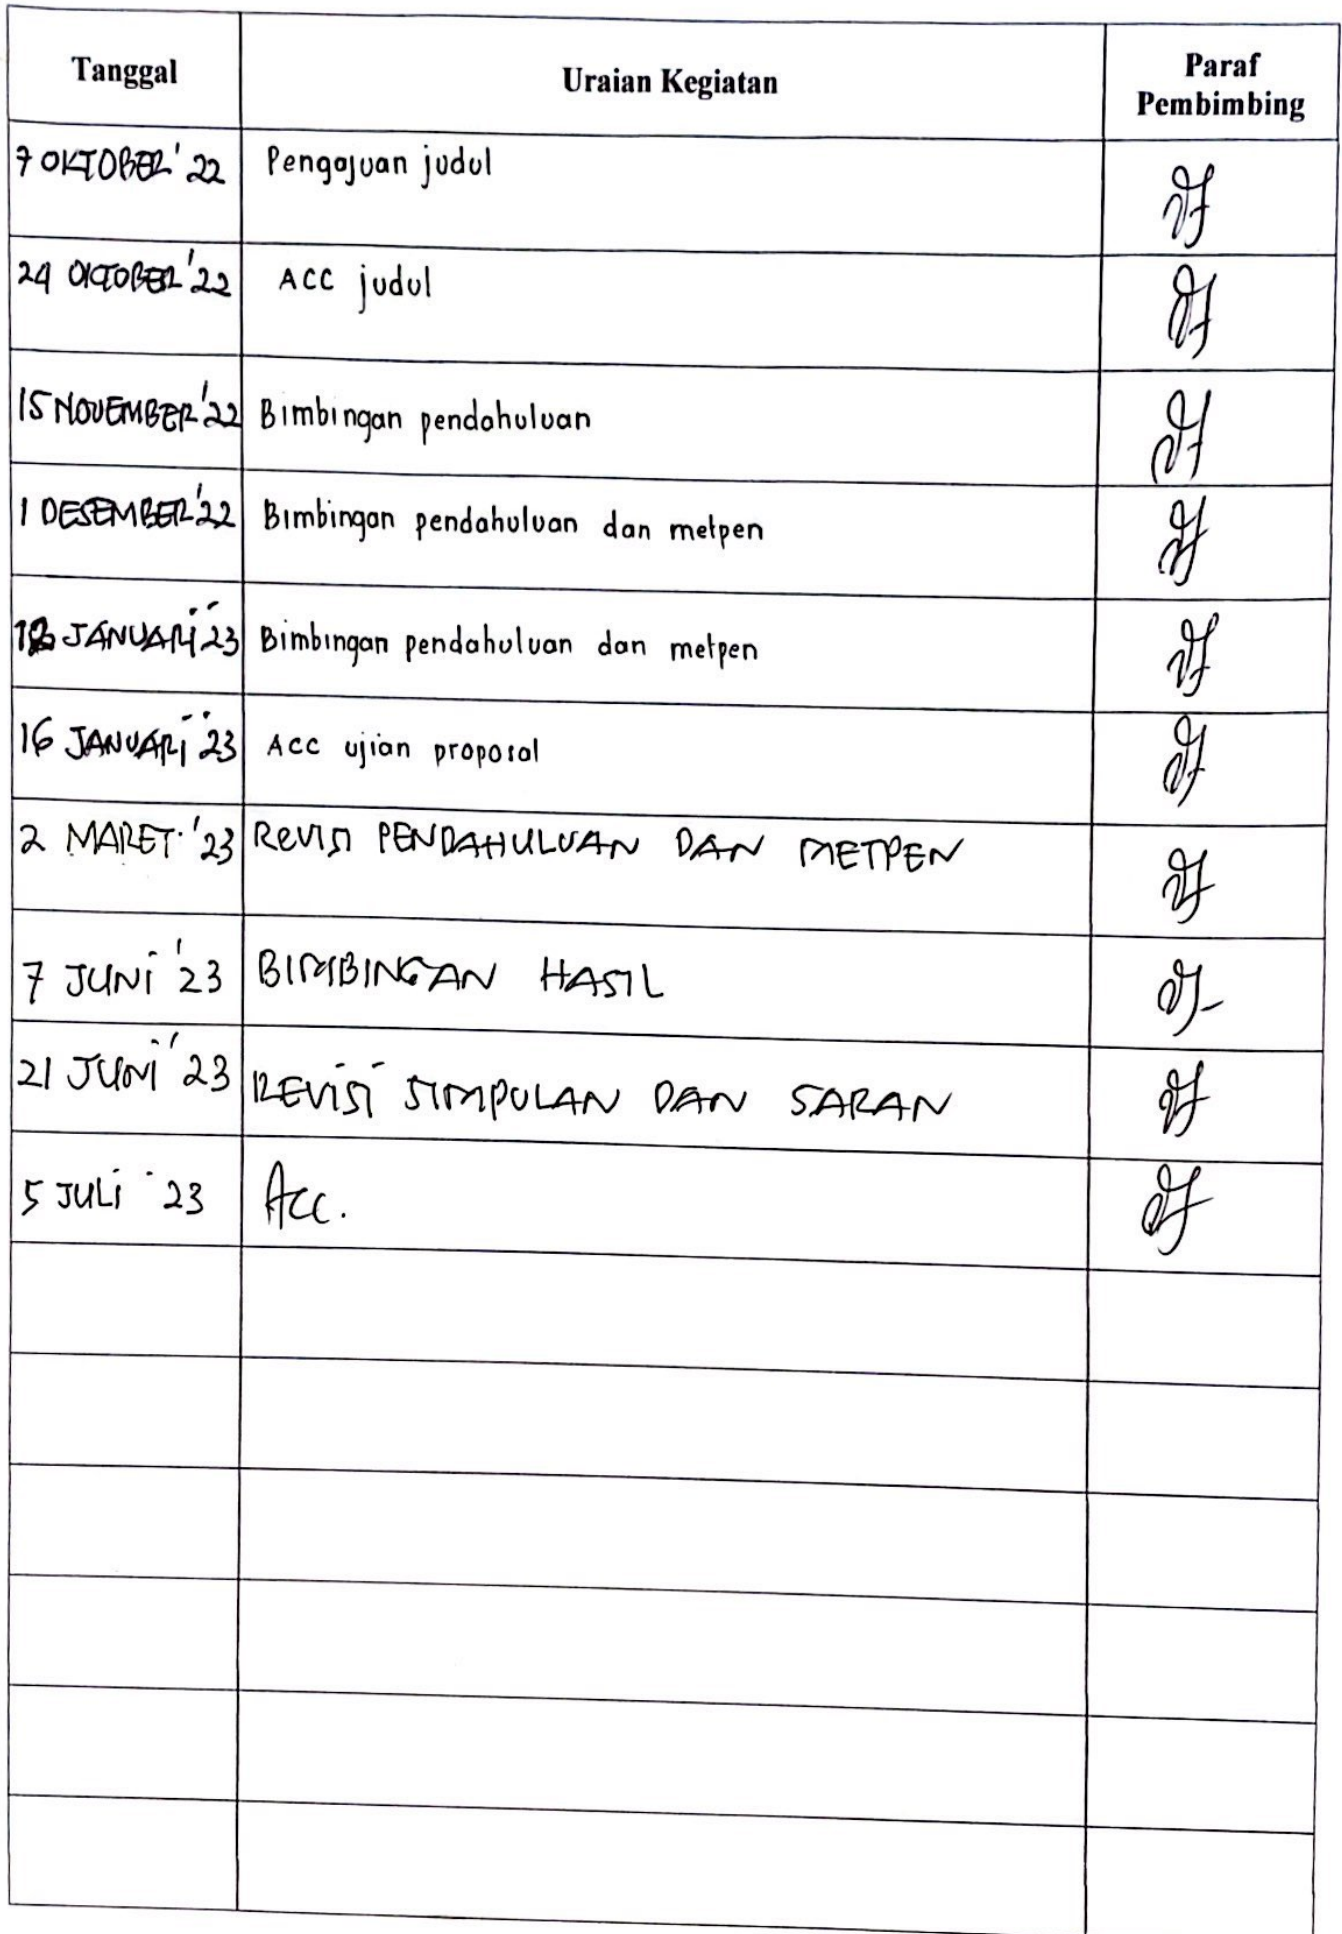 Tanggal
Uraian Kegiatan
Paraf
Pembimbing
7 OKTOBER '22 Pengajuan judul
24 OKTOBER '22 ACC judul
15 NOVEMBER '22 Bimbingan pendahuluan
1 DESEMBER '22 Bimbingan pendahuluan dan metpen
JANUARI '23 Bimbingan pendahuluan dan metpen
16 JANUARI '23 ACC ujian proposal
2 MARET '23 REVISI PENDAHULUAN DAN METPEN
7 JUNI '23 BIMBINGAN HASIL
21 JUNI '23 REVISI SIMPULAN DAN SARAN
5 JULI '23 Acc.